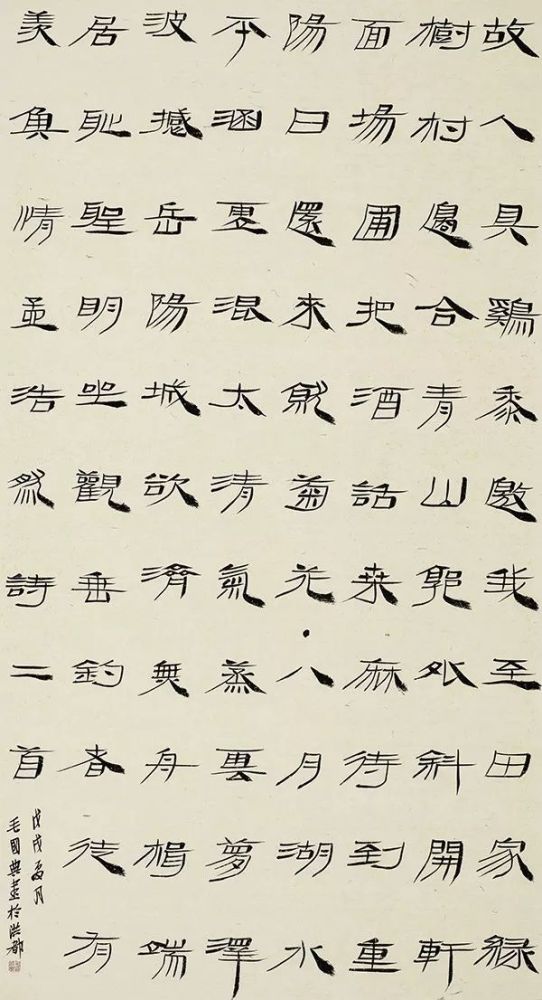 故人具鷄黍邀我至田家緑
樹村邊合青山郭外斜開軒
面場圃把酒話桒麻待到重
陽日還來就菊花八月湖水
平涵虚混太清氣蒸雲夢澤
波撼岳陽城欲濟無舟楫端
居耻聖明坐觀垂釣者徒有
羨魚情孟浩然詩二首
戊戌夏月
毛國典書於洪都